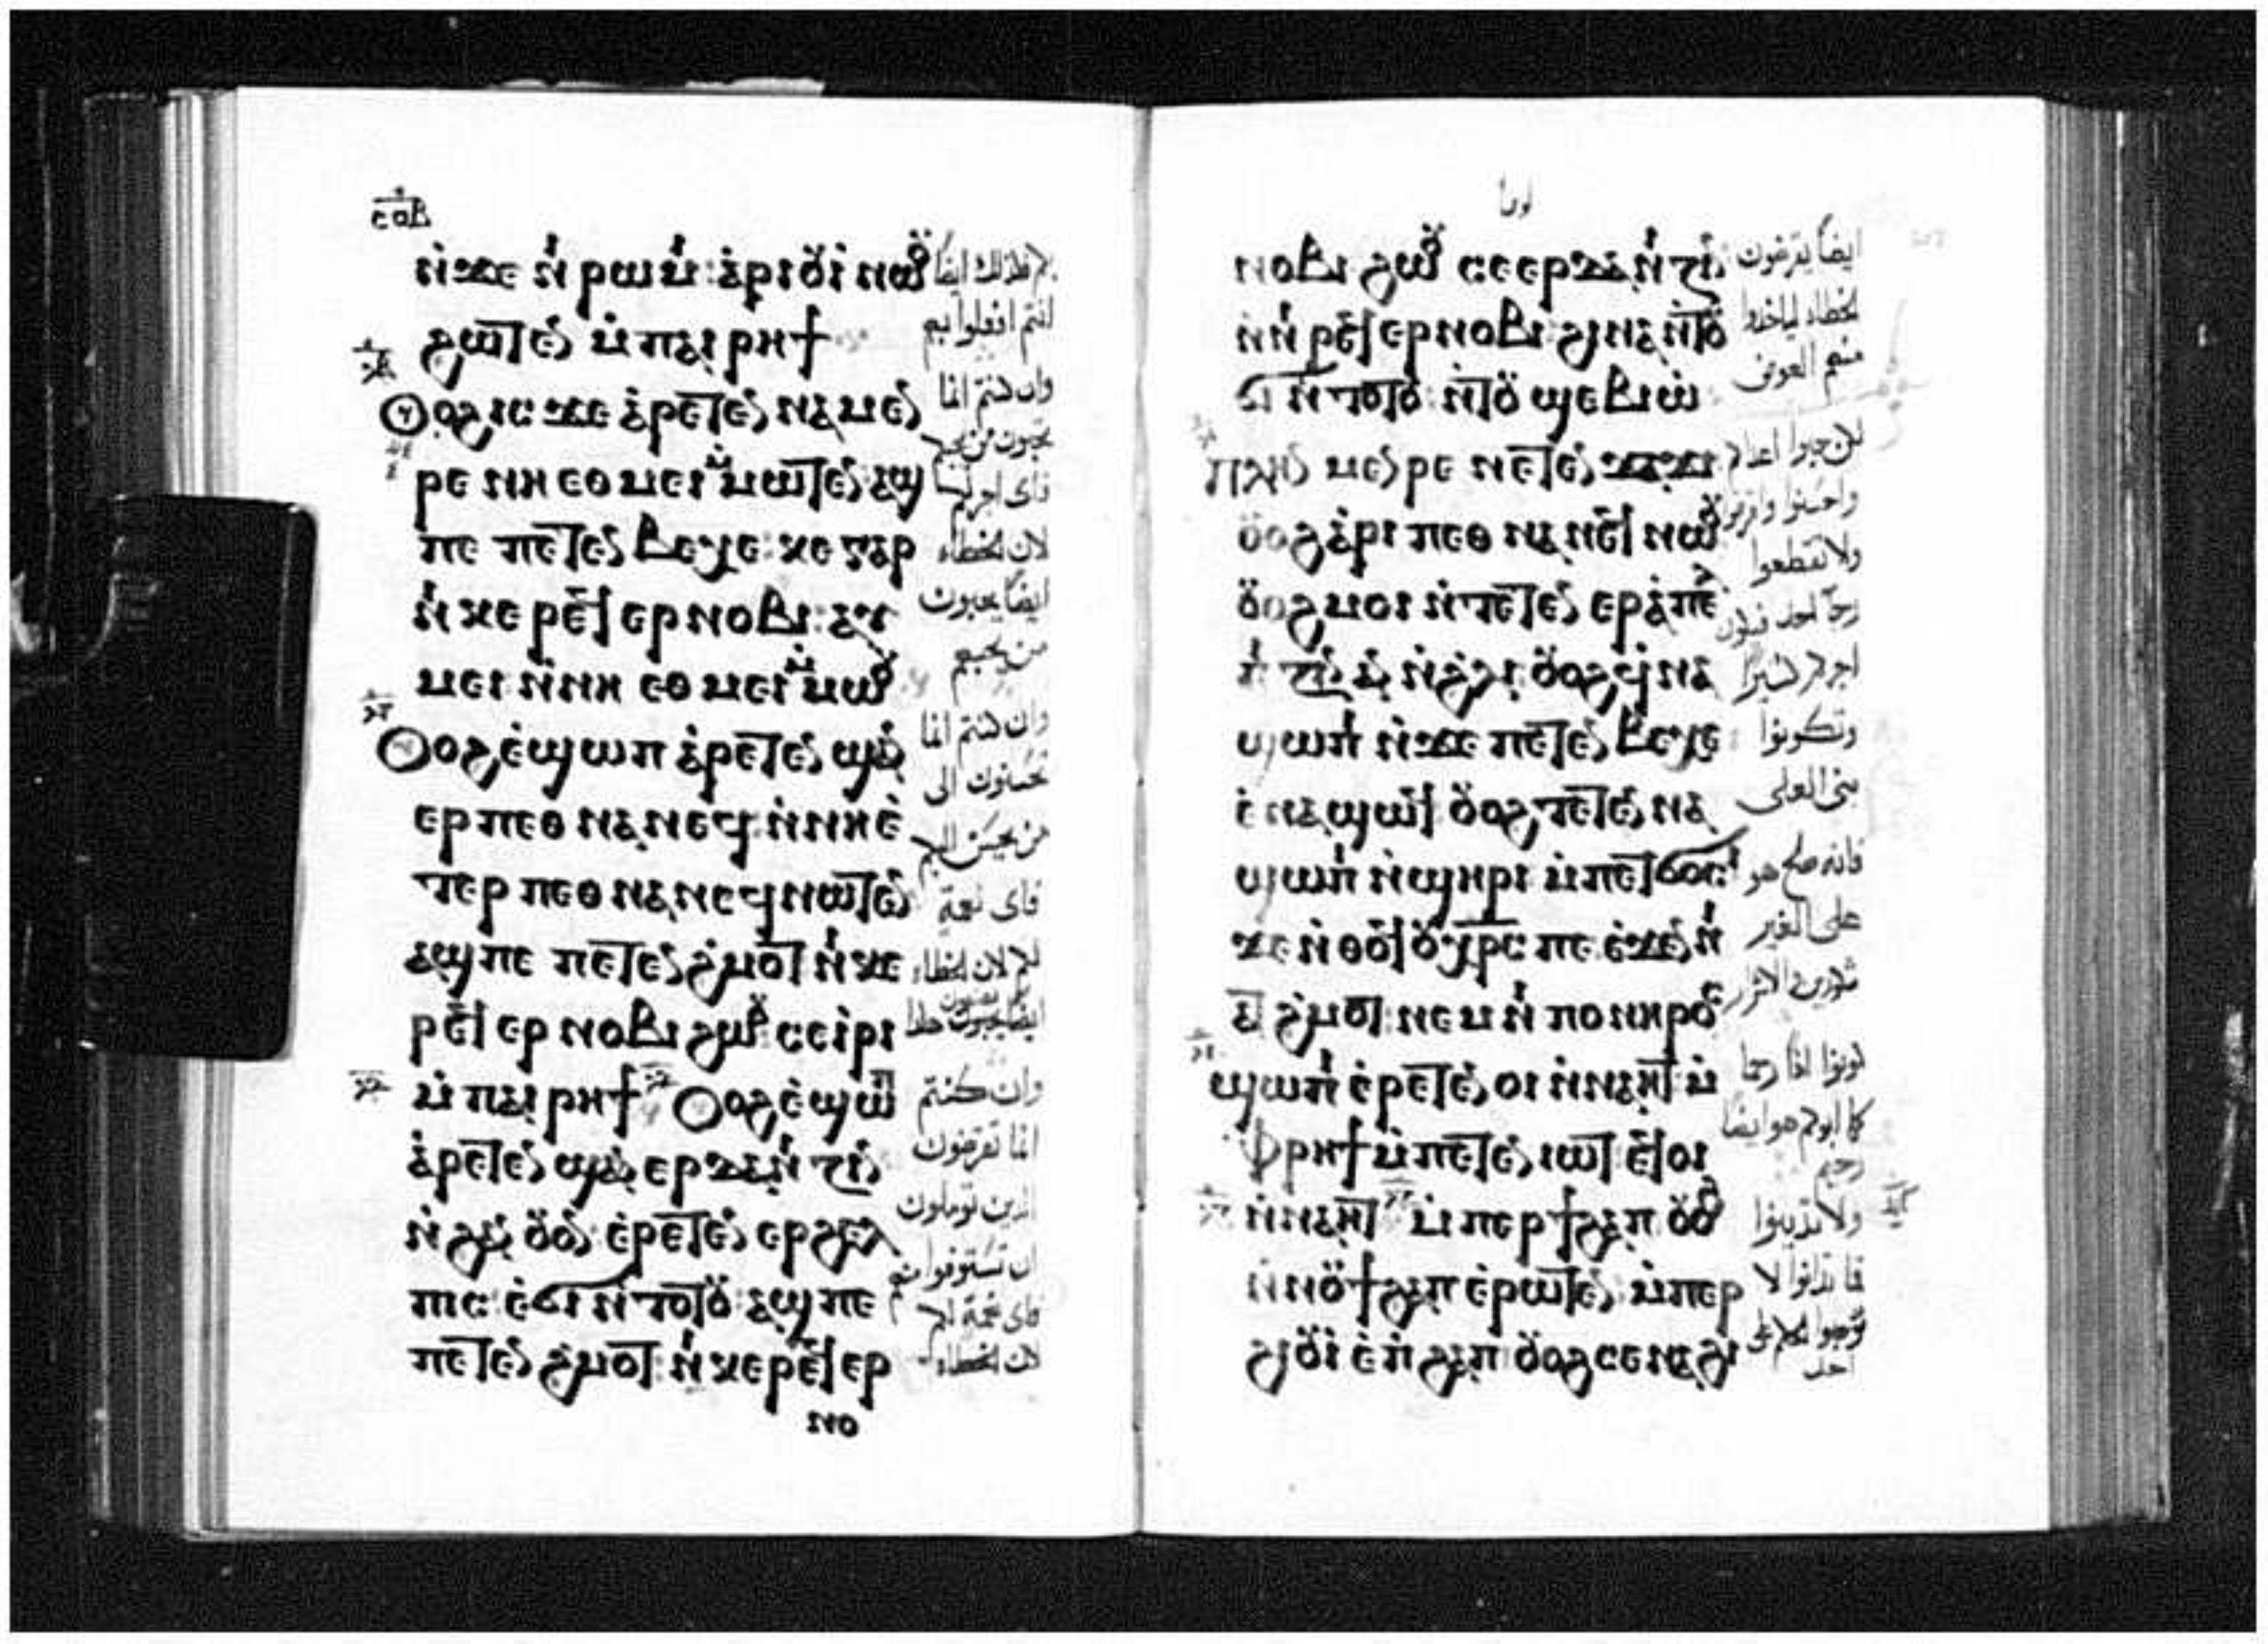 ⲥⲟⲃ
ⲛ̇ϫⲉ ⲛⲓ ⲣⲱⲙⲓ: ⲁ̇ⲣⲓⲟⲩⲓ̇ ⲛⲱⲟⲩ
ϩⲱⲧⲉⲛ ⲙ̇ⲡⲁⲓⲣⲏϯ
ⲟⲩⲟϩ ⲓⲥϫⲉ ⲁ̇ⲣⲉⲧⲉⲛ ⲛⲁⲙⲉⲛ
ⲣⲉ ⲛⲏ ⲉⲑⲙⲉⲓ ⲙ̇ⲙⲱⲧⲉⲛ ⲁϣ
ⲡⲉ ⲡⲉⲧⲉⲛ ⲃⲉⲭⲉ: ⲕⲉ ⲅⲁⲣ
ⲛⲓ ⲕⲉ ⲣⲉϥ ⲉⲣ ⲛⲟⲃⲓ:
ⲙⲉⲓ ⲛ̇ⲛⲏ ⲉⲑ ⲙⲉⲓ ⲙ̇ⲙⲱⲟⲩ
ⲟⲩⲟϩ ⲉ̇ϣⲱⲡ ⲁ̇ⲣⲉⲧⲉⲛ ϣⲁⲛ
ⲉⲣ ⲡⲉⲑ ⲛⲁⲛⲉϥ ⲛ̇ⲛⲏ ⲉ̇
ⲧⲉⲣ ⲡⲉⲑ ⲛⲁⲛⲉϥ ⲛⲱⲧⲉⲛ
ⲁϣ ⲡⲉ ⲡⲉⲧⲉⲛ ϩ̇ⲙⲟⲧ ⲛⲓ ⲕⲉ
ⲣⲉϥ ⲉⲣ ⲛⲟⲃⲓ ϩⲱⲟⲩ ⲥⲉⲓ̇ⲣⲓ
ⲙ̇ⲡⲁⲓⲣⲏϯ ⲟⲩⲟϩ ⲉ̇ϣⲱⲡ
ⲁ̇ⲣⲉⲧⲉⲛ ϣⲁⲛ ⲉⲣ ⲇⲁⲛⲓⲍⲓⲛ
ⲛ̇ϩⲁⲛ ⲟⲩⲟⲛ ⲉ̇ⲣⲉⲧⲉⲛ ⲉⲣ ϩⲉⲗ
ⲡⲓⲥ ⲉ̇ϭⲓ ⲛ̇ⲧⲟⲧⲟⲩ ⲁϣ ⲡⲉ
ⲡⲉⲧⲉⲛ ϩ̇ⲙⲟⲧ ⲛⲓ ⲕⲉ ⲣⲉϥ ⲉⲣ
ⲛⲟ
انتم افعلوا بهم
وان كنتم انما
تحبون من يحبكم
فاى اجر لكم
لان الخطاه
ايضا يحبون
من يحبهم
وان كنتم انما
تحسنون الى
من يحسن اليكم
فاى نعمة
لكم لان الخطاه
وان كنتم
انما تقرضون
الذين توملون
ان تستوفوا منهم
فاى نعمة لكم
لان الخطاه
لوقا
ⲛⲟⲃⲓ ϩⲱⲟⲩ ⲥⲉⲉⲣⲇⲁⲛⲓⲍⲓⲛ
ⲛ̇ⲛⲓ ⲣⲉϥ ⲉⲣⲛⲟⲃⲓ: ϩⲓⲛⲁ ⲛ̇ⲧⲟⲩ
ϭⲓ ⲛ̇ⲧⲟⲧⲟⲩ ⲛ̇ⲧⲟⲩ ϣⲉⲃⲓⲱ̇
ⲡⲗⲏⲛ ⲙⲉⲛⲣⲉ ⲛⲉⲧⲉⲛ ϫⲁϫⲓ
ⲟⲩⲟϩ ⲁ̇ⲣⲓ ⲡⲉⲑ ⲛⲁⲛⲉϥ ⲛⲱⲟⲩ
ⲟⲩⲟϩ ⲙⲟⲓ ⲛ̇ⲧⲉⲧⲉⲛ ⲉⲣⲁ̇ⲡⲉⲗ
ⲡⲓⲍⲓⲛ ⲁⲛ ⲛ̇ϩ̇ⲗⲓ ⲟⲩⲟϩ ϥ̇ⲛⲁ
ϣⲱⲡⲓ ⲛ̇ϫⲉ ⲡⲉⲧⲉⲛ ⲃⲉⲭⲉ
ⲉ̇ⲛⲁϣⲱϥ ⲟⲩⲟϩ ⲧⲉⲧⲉⲛ ⲛⲁ
ϣⲱⲡⲓ ⲛ̇ϣⲏⲣⲓ ⲙ̇ⲡⲉⲧϭⲟⲥⲓ
ϫⲉ ⲛ̇ⲑⲟϥ ⲟⲩⲭⲣⲥ ⲡⲉ ⲉ̇ϫⲉⲛ ⲛⲓ
ⲁⲧ ϩ̇ⲙⲟⲧ ⲛⲉⲙ ⲛⲓ ⲡⲟⲛⲏⲣⲟⲥ
ϣⲱⲡⲓ ⲉ̇ⲣⲉⲧⲉⲛ ⲟⲓ ⲛ̇ⲛⲁⲏⲧ ⲙ̇
ⲫⲣⲏϯ ⲙ̇ⲡⲉⲧⲉⲛ ⲓⲱⲧ ⲉϥⲟⲓ
ⲛ̇ⲛⲁⲏⲧ ⲙ̇ⲡⲉⲣϯϩⲁⲡ ⲟⲩⲟϩ
ⲛ̇ⲛⲟⲩϯϩⲁⲡ ⲉ̇ⲣⲱⲧⲉⲛ ⲙ̇ⲡⲉⲣ
ϩⲓⲟⲩⲓ̇ ⲉ̇ⲡϩⲁⲡ ⲟⲩⲟϩ ⲥⲉⲛⲁϩⲓ
ايضا يقرضون
الخطاه لياخذوا
منهم العوض
لكن حبوا اعداكم
ولا تقطعوا
وتكونوا
بنى العلى
فانه صالح هو
على الغير
كونوا انتم رحما
كما ابوكم هو ايضا
رحيم
ولا تدينوا
احد